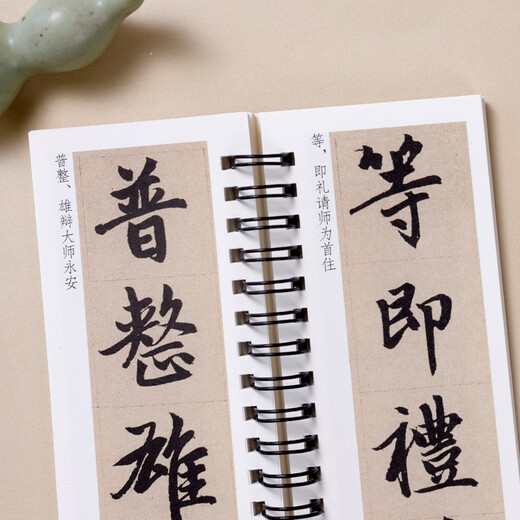 等，即礼请师为首住
等即禮
普整、雄辩大师永安
普整雄